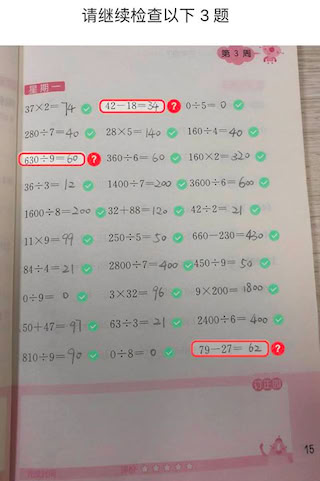 请继续检查以下 3 题
第 3 周
星期一
37×2=74 42-18=34 ? 0÷5=0
280÷7=40 28×5=140 160÷4=40
630÷9=60 ? 360÷6=60 160×2=320
36÷3=12 1400÷7=200 3600÷6=600
1600÷8=200 32+88=120 42÷2=21
11×9=99 250÷5=50 660-230=430
84÷4=21 2800÷7=400 450÷9=50
0÷9=0 3×32=96 9×200=1800
50+47=97 63÷3=21 2400÷6=400
810÷9=90 0÷8=0 79-27=62 ?
15